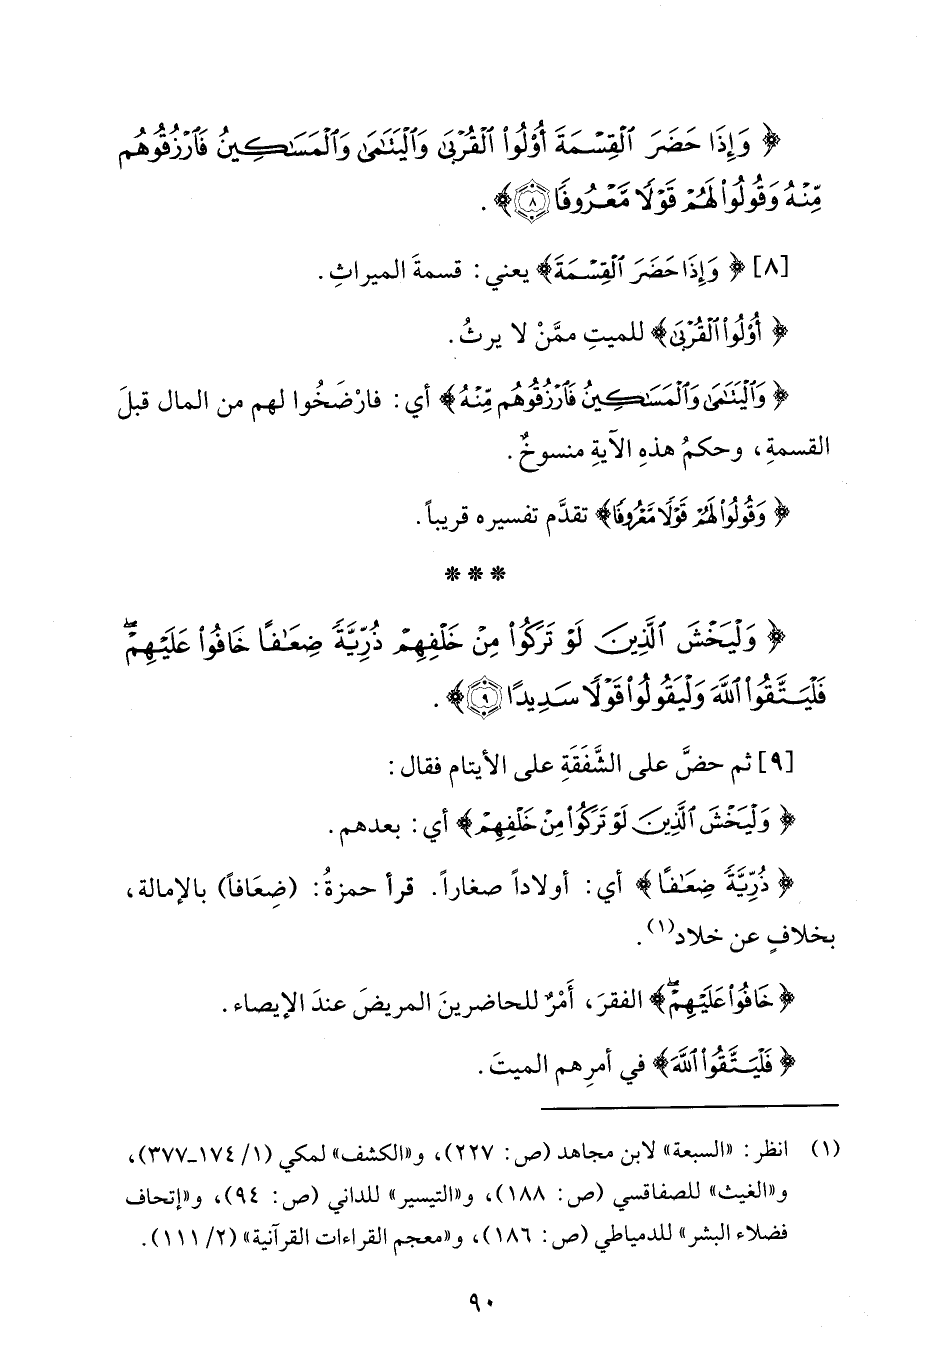 ﴿ وَإِذَا حَضَرَ ٱلْقِسْمَةَ أُوْلُواْ ٱلْقُرْبَىٰ وَٱلْيَتَٰمَىٰ وَٱلْمَسَٰكِينُ فَٱرْزُقُوهُم
مِّنْهُ وَقُولُواْ لَهُمْ قَوْلًا مَّعْرُوفًا ۝٨﴾ .
[٨] ﴿ وَإِذَا حَضَرَ ٱلْقِسْمَةَ﴾ يعني: قسمةَ الميراثِ .
﴿ أُوْلُواْ ٱلْقُرْبَىٰ﴾ للميتِ ممَّنْ لا يرثُ .
﴿ وَٱلْيَتَٰمَىٰ وَٱلْمَسَٰكِينُ فَٱرْزُقُوهُم مِّنْهُ﴾ أي: فارْضَخُوا لهم من المال قبلَ
القسمةِ، وحكمُ هذهِ الآيةِ منسوخٌ .
﴿ وَقُولُواْ لَهُمْ قَوْلًا مَّعْرُوفًا﴾ تقدَّم تفسيره قريباً .
* * *
﴿ وَلْيَخْشَ ٱلَّذِينَ لَوْ تَرَكُواْ مِنْ خَلْفِهِمْ ذُرِّيَّةً ضِعَٰفًا خَافُواْ عَلَيْهِمْ ۖ
فَلْيَتَّقُواْ ٱللَّهَ وَلْيَقُولُواْ قَوْلًا سَدِيدًا ۝٩﴾ .
[٩] ثم حضَّ على الشَّفَقَةِ على الأيتام فقال:
﴿ وَلْيَخْشَ ٱلَّذِينَ لَوْ تَرَكُواْ مِنْ خَلْفِهِمْ﴾ أي: بعدهم .
﴿ ذُرِّيَّةً ضِعَٰفًا﴾ أي: أولاداً صغاراً. قرأ حمزةُ: (ضِعَافاً) بالإمالة،
بخلافٍ عن خلاد(١) .
﴿ خَافُواْ عَلَيْهِمْ ۖ﴾ الفقرَ، أَمْرٌ للحاضرينَ المريضَ عندَ الإيصاء .
﴿ فَلْيَتَّقُواْ ٱللَّهَ﴾ في أمرِهم الميتَ .
(١) انظر: «السبعة» لابن مجاهد (ص: ٢٢٧)، و«الكشف» لمكي (١/ ١٧٤ـ٣٧٧)،
و«الغيث» للصفاقسي (ص: ١٨٨)، و«التيسير» للداني (ص: ٩٤)، و«إتحاف
فضلاء البشر» للدمياطي (ص: ١٨٦)، و«معجم القراءات القرآنية» (٢/ ١١١).
٩٠